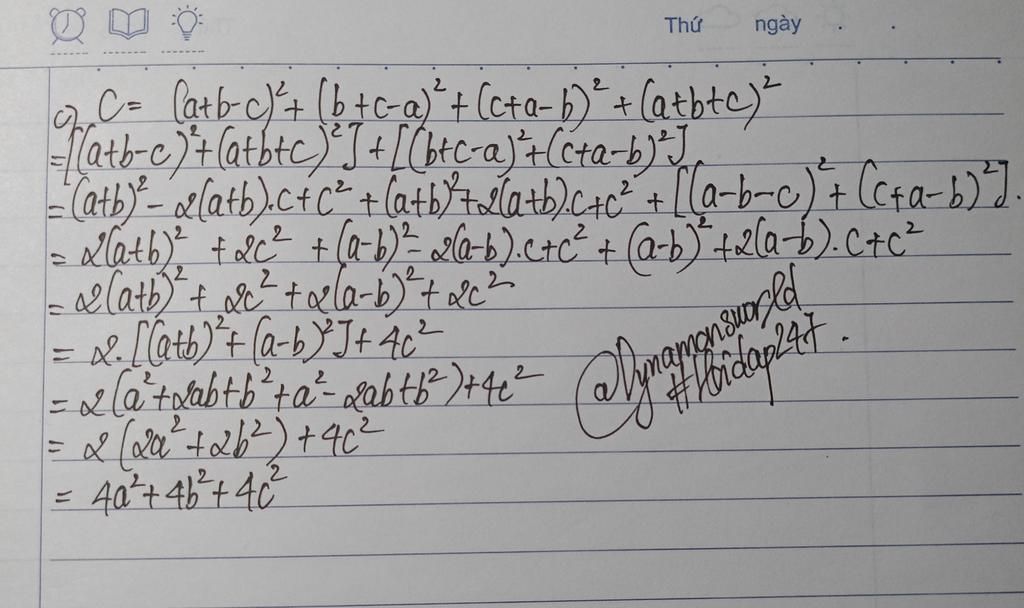 Thứ ngày . .
c) C = (a+b-c)² + (b+c-a)² + (c+a-b)² + (a+b+c)²
= [(a+b-c)² + (a+b+c)²] + [(b+c-a)² + (c+a-b)²]
= (a+b)² - 2(a+b).c+c² + (a+b)² + 2(a+b).c+c² + [(a-b-c)² + (c+a-b)²].
= 2(a+b)² + 2c² + (a-b)² - 2(a-b).c+c² + (a-b)² + 2(a-b).c+c²
= 2(a+b)² + 2c² + 2(a-b)² + 2c²
= 2.[(a+b)² + (a-b)²] + 4c²
= 2(a²+2ab+b²+a²-2ab+b²)+4c²
= 2(2a²+2b²)+4c²
= 4a²+4b²+4c²
@Dynamonsworld
#Hoidap247.